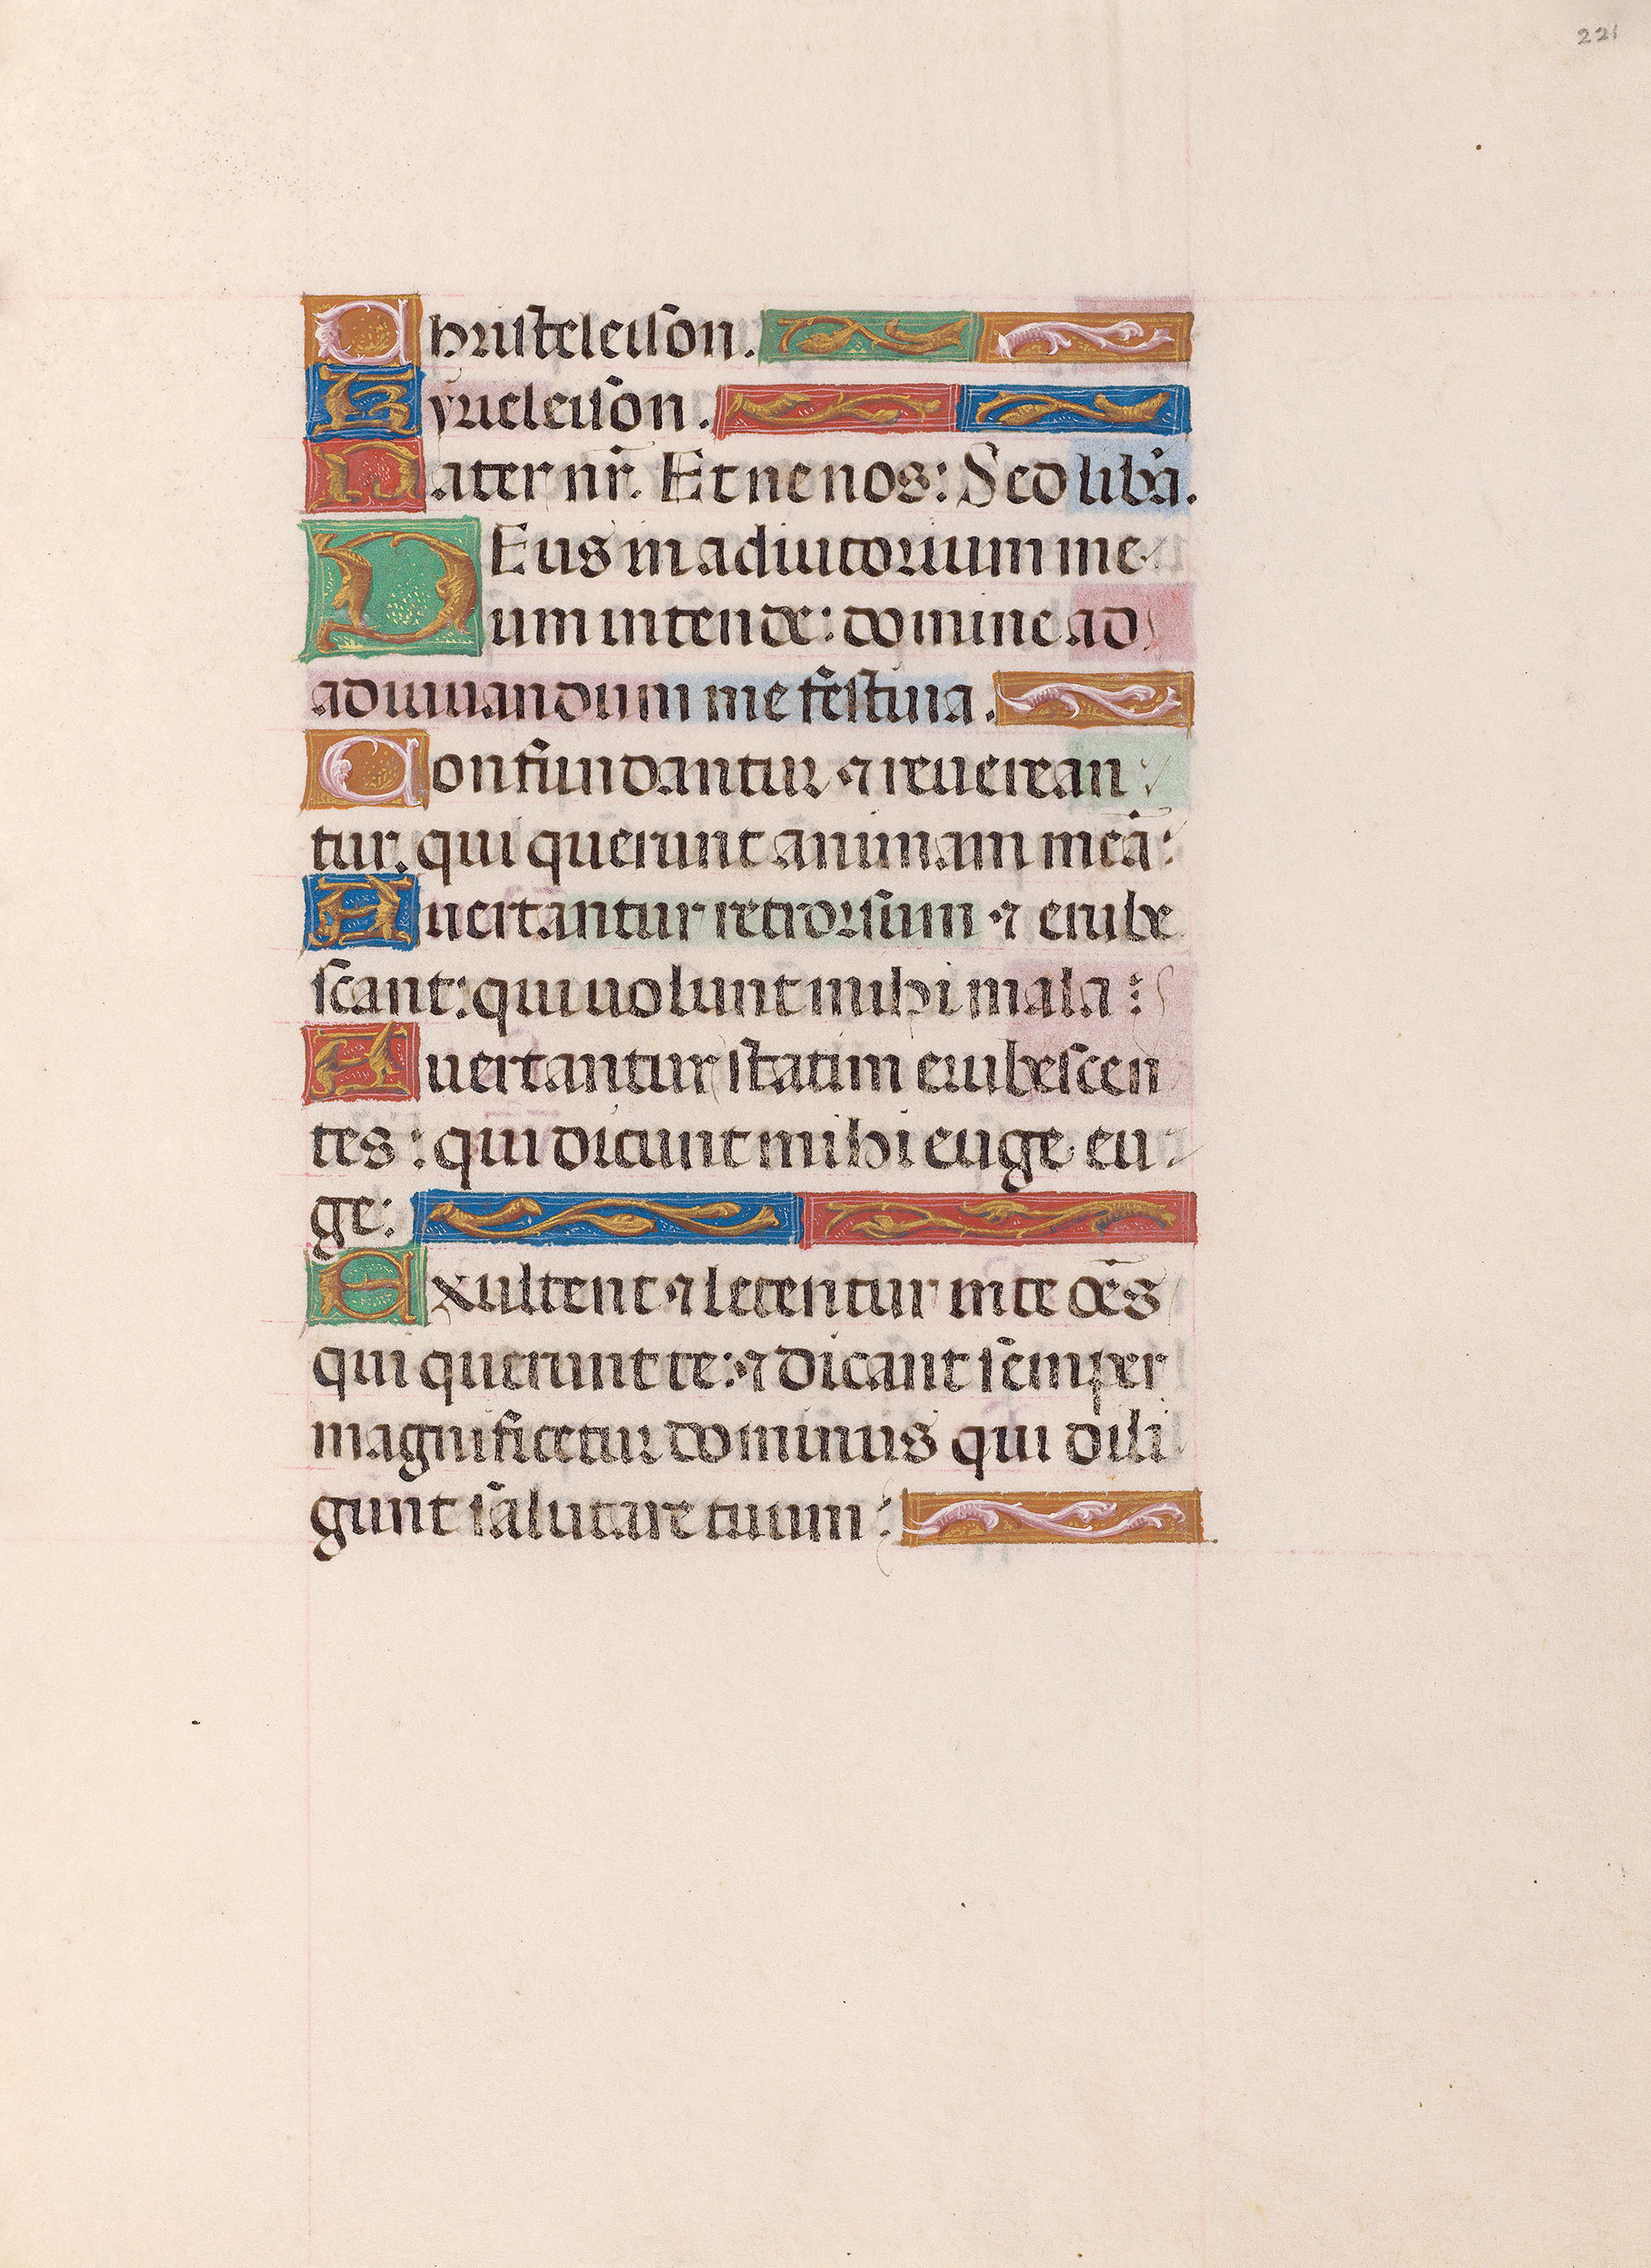 221
Christeleison.
Kyrieleison.
Pater nr̄. Et ne nos: Sed liba.
DEus in adiutorium me
um intende: domine ad
adiuuandum me festina.
Confundantur ⁊ reuerean
tur. qui querunt animam meā:
Auertantur retrorsum ⁊ erube
scant: qui uolunt mihi mala:
Auertantur statim erubescen
tes: qui dicunt mihi euge eu
ge:
Exultent ⁊ letentur in te oēs
qui querunt te: ⁊ dicant semper
magnificetur dominus qui dili
gunt salutare tuum: